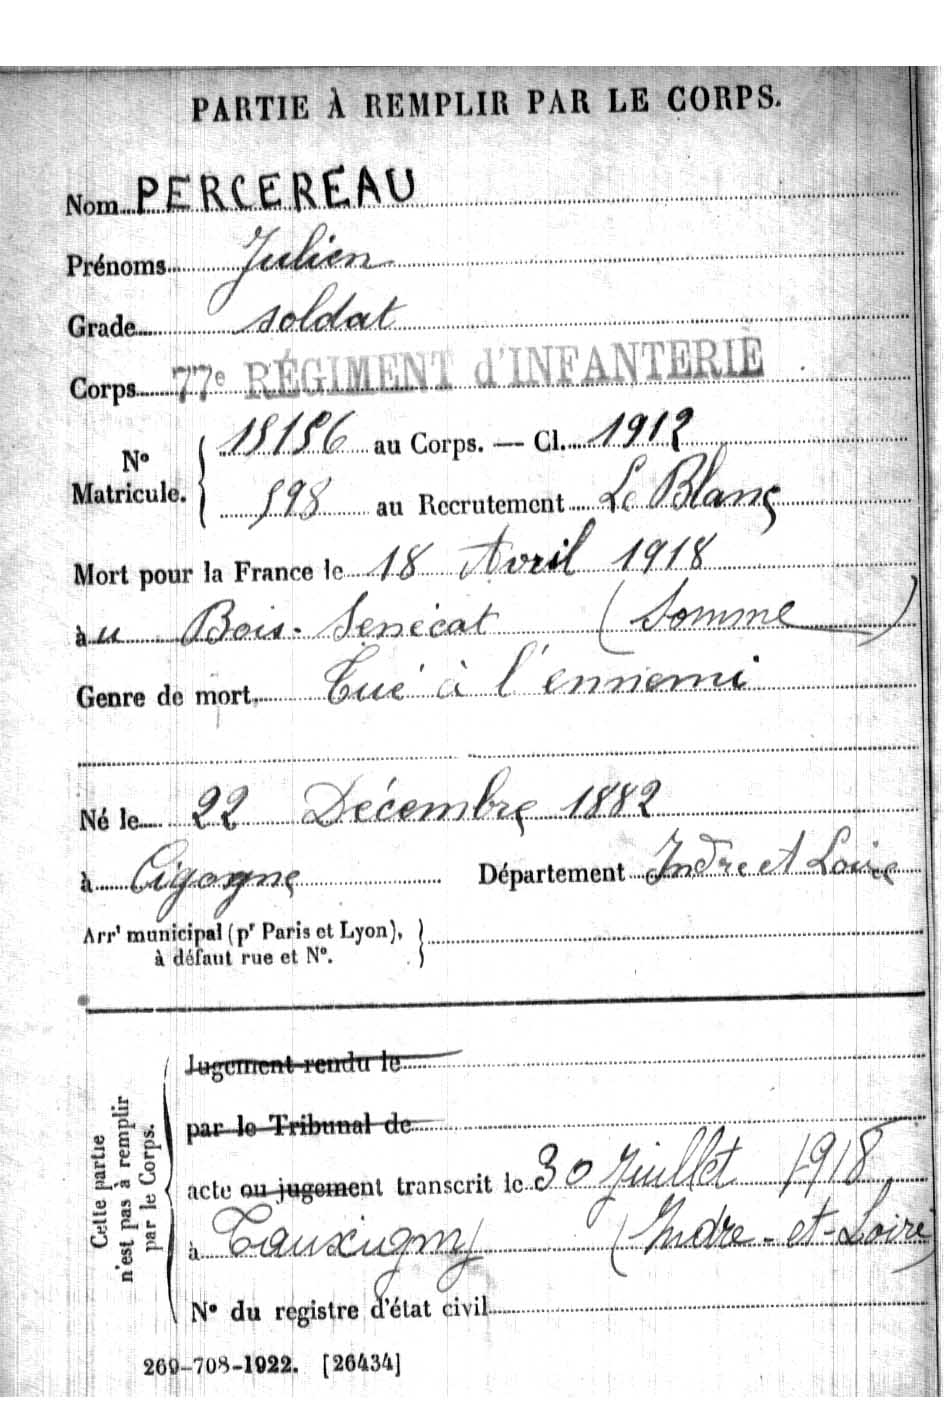 PARTIE À REMPLIR PAR LE CORPS.
Nom PERCEREAU
Prénoms Julien
Grade soldat
Corps 77e RÉGIMENT d'INFANTERIE
No Matricule. { au Corps. — Cl. 1912
598 au Recrutement Le Blanc
Mort pour la France le 18 Avril 1918
à u Bois-Senécat (Somme)
Genre de mort Tué à l'ennemi
Né le 22 Décembre 1882
à Cigogne Département Indre et Loire
Arrt municipal (pr Paris et Lyon), }
à défaut rue et No.
Cette partie n'est pas à remplir par le Corps.
Jugement rendu le
par le Tribunal de
acte ou jugement transcrit le 30 Juillet 1918
à Tauxigny (Indre-et-Loire)
No du registre d'état civil
269-708-1922. [26434]